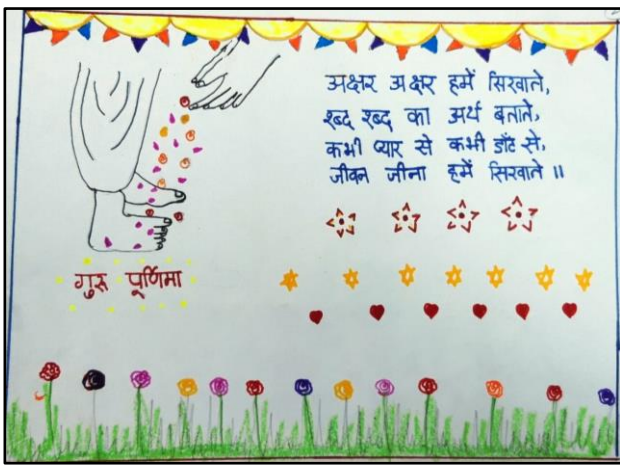 अक्षर अक्षर हमें सिखाते,
शब्द शब्द का अर्थ बताते,
कभी प्यार से कभी डाँट से,
जीवन जीना हमें सिखाते ॥
गुरु पूर्णिमा